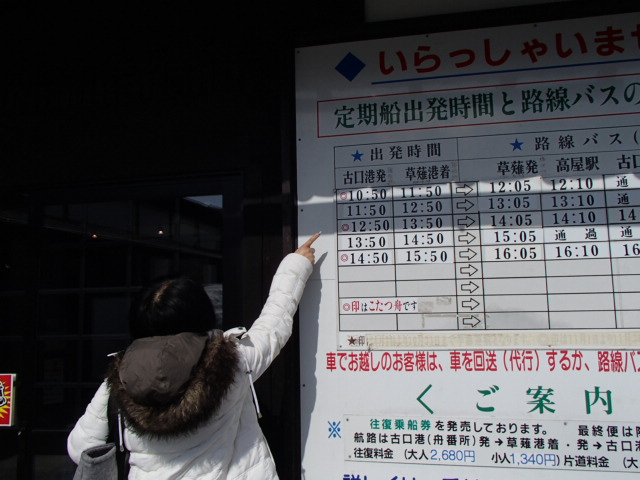 ◆いらっしゃいませ
定期船出発時間と路線バスの
★出発時間 ★路線バス(
古口港発 草薙港着 草薙発 高屋駅 古口
◎10:50 11:50 ⇨ 12:05 12:10 通
11:50 12:50 ⇨ 13:05 13:10 通
◎12:50 13:50 ⇨ 14:05 14:10 14
13:50 14:50 ⇨ 15:05 通過 通
◎14:50 15:50 ⇨ 16:05 16:10 16
◎印はこたつ舟です
★印
車でお越しのお客様は、車を回送(代行)するか、路線バス
くご案内
※往復乗船券を発売しております。 最終便は
航路は古口港(舟番所)発→草薙港着・発→古口
往復料金 (大人2,680円 小人1,340円)片道料金 (大